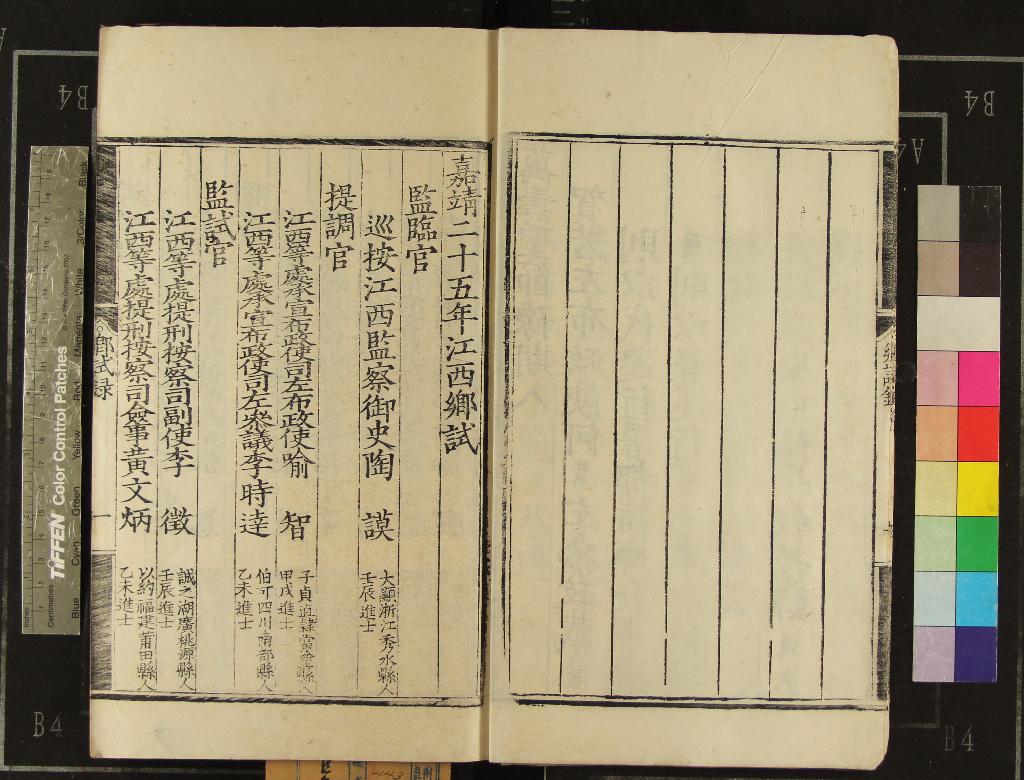 嘉靖二十五年江西鄉試
監臨官
巡按江西監察御史陶 謨
大顯浙江秀水縣人
壬辰進士
提調官
江西等處承宣布政使司左布政使喻 智
子貞直隸當塗縣人
甲戌進士
江西等處承宣布政使司左叅議李時達
伯可四川南部縣人
乙未進士
監試官
江西等處提刑按察司副使李 徵
誠之湖廣桃源縣人
壬辰進士
江西等處提刑按察司僉事黄文炳
以約福建莆田縣人
乙未進士
鄉試录
一
B4
B4
B4
B4
A4
TIFFEN Color Control Patches
Blue
Cyan
Green
Yellow
Red
Magenta
White
3/Color
Black
Inches
Centimetres